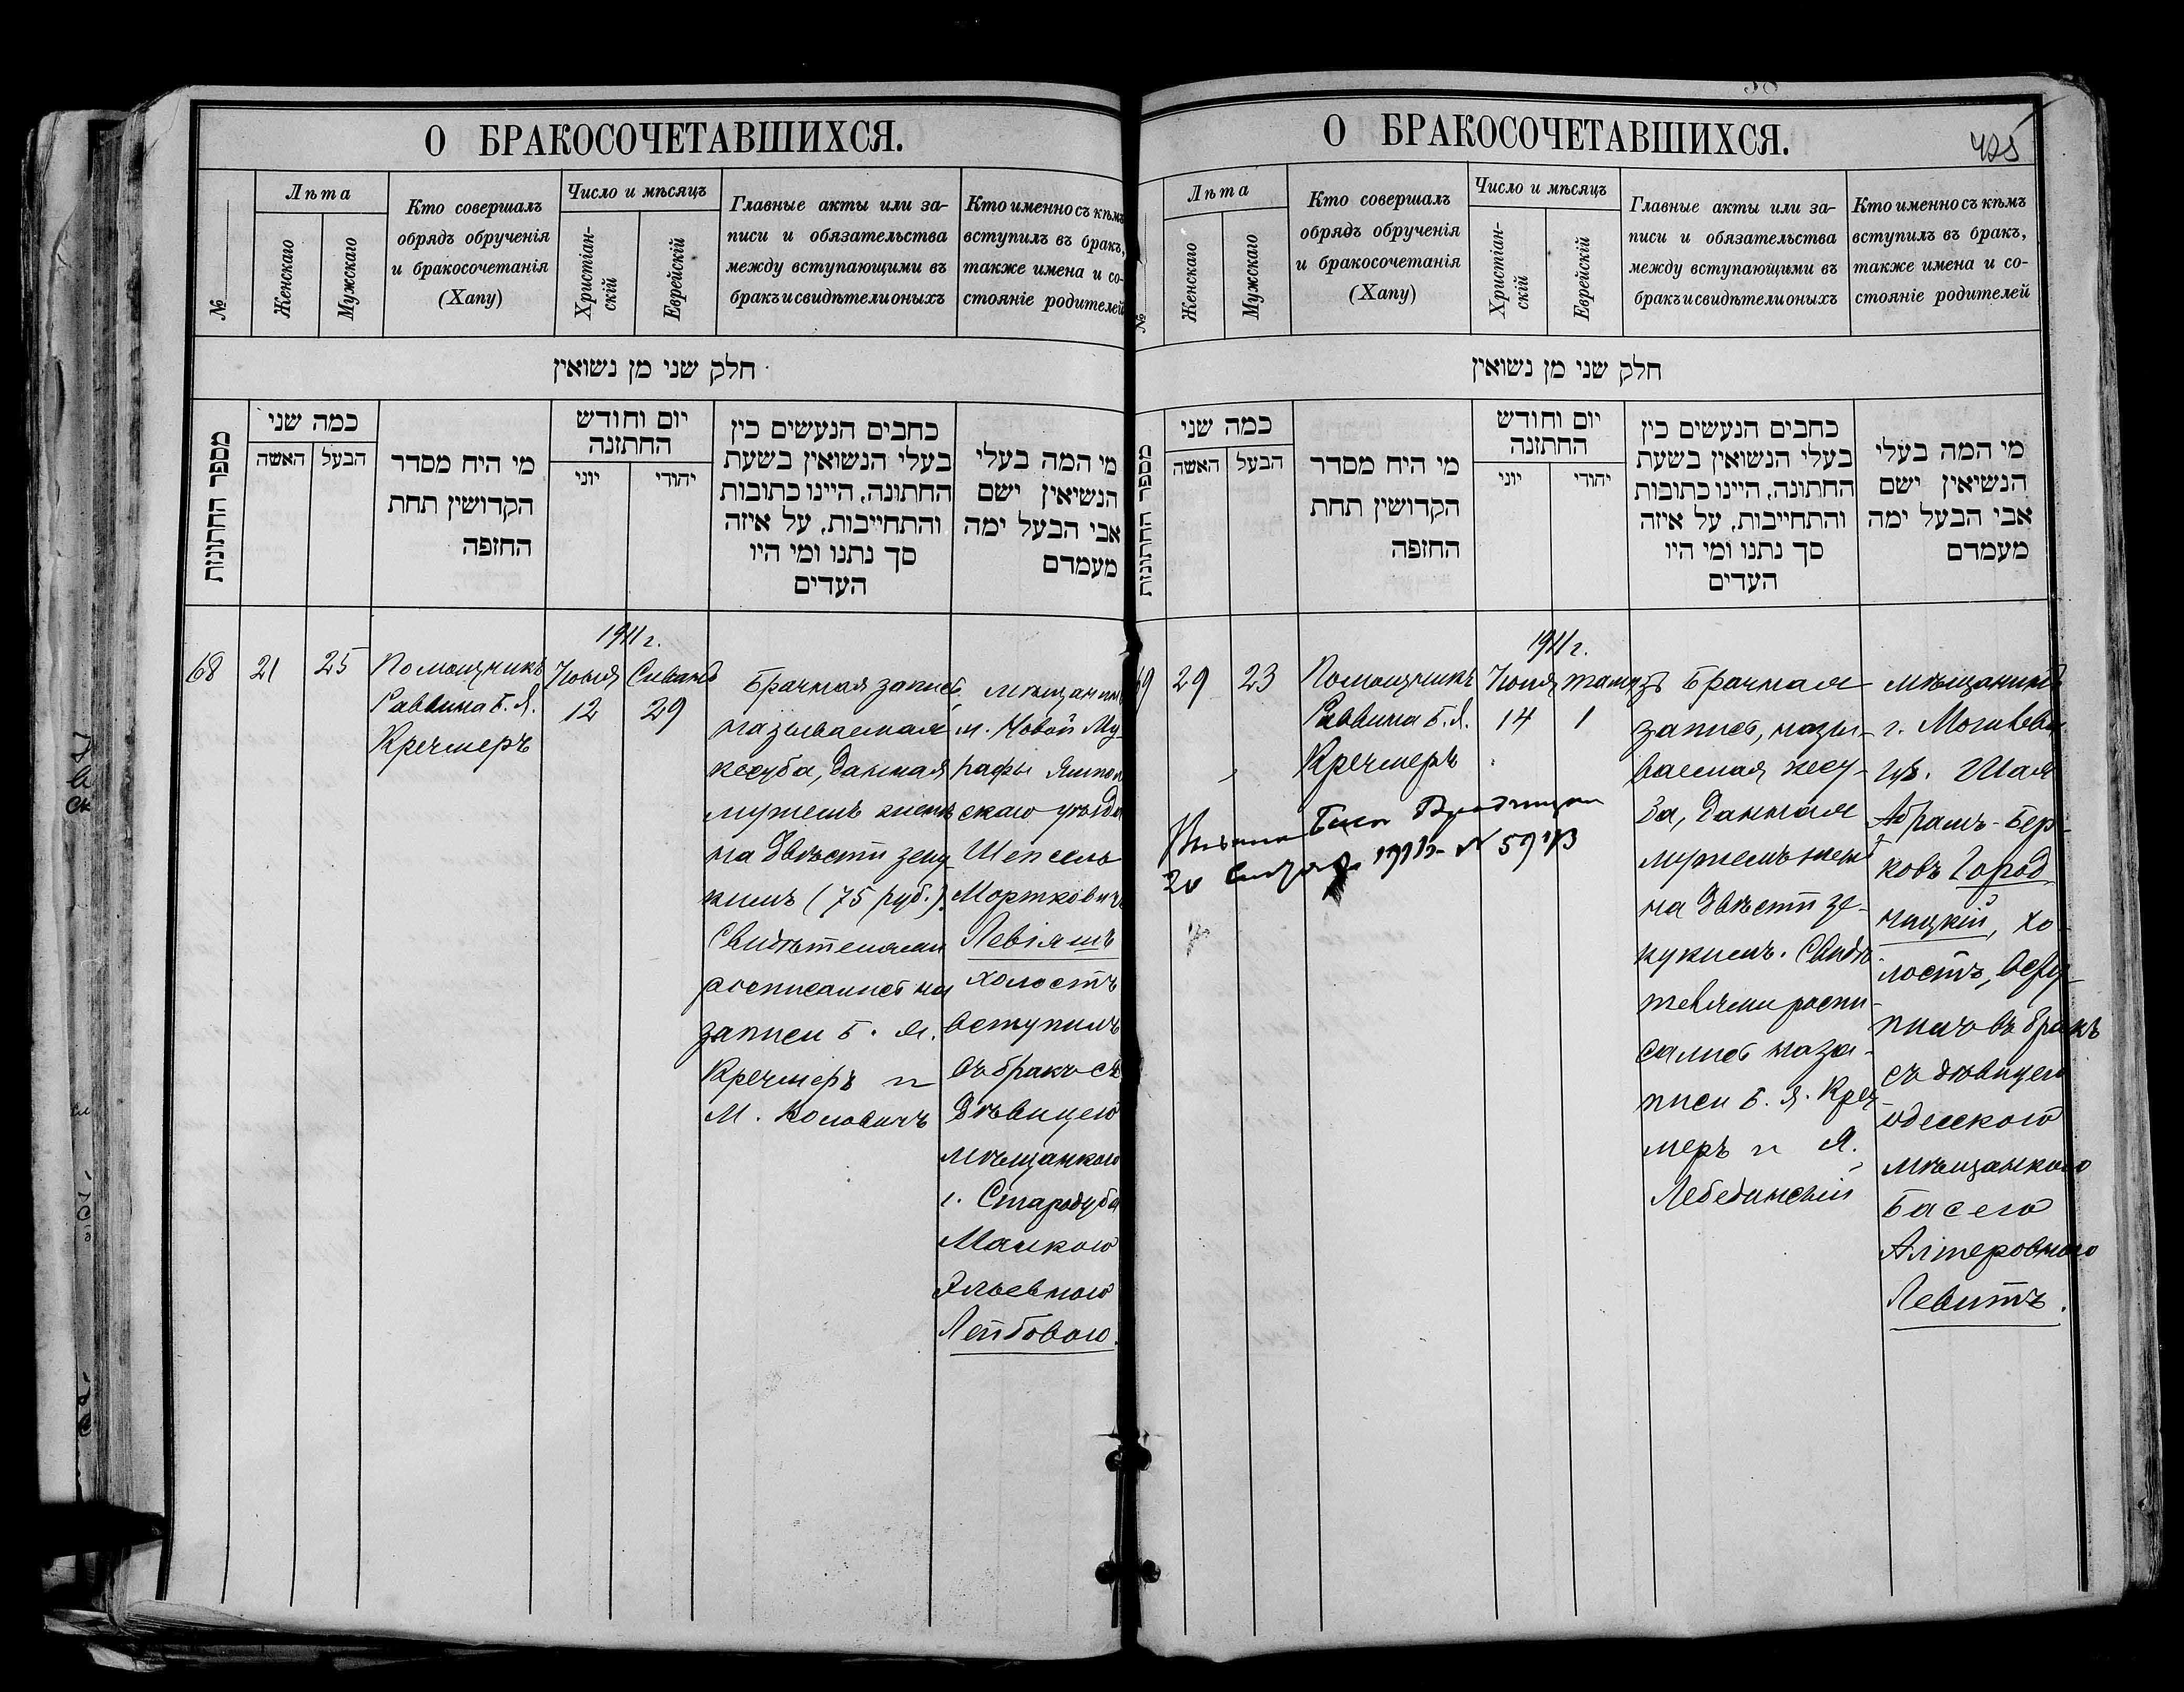 О БРАКОСОЧЕТАВШИХСЯ.
№
Лѣта
Женскаго
Мужскаго
Кто совершалъ
обрядъ обрученія
и бракосочетанія
(Хапу)
Число и мѣсяцъ
Христіан-
скій
Еврейскій
Главные акты или за-
писи и обязательства
между вступающими въ
бракъ и свидѣтели оныхъ
Кто именно съ кѣмъ
вступилъ въ бракъ,
также имена и со-
стояніе родителей
חלק שני מן נשואין
מספר החתונות
כמה שני
האשה
הבעל
מי היח מסדר
הקדושין תחת
החזפה
יום וחודש
החתזנה
יוני
יהודי
כחבים הנעשים כין
בעלי הנשואין בשעת
החתונה, היינו כתוכות
והתחייבות, על איזה
סך נתנו ומי היו
העדים
מי המה בעלי
הנשיאין ישם
אבי הבעל ימה
מעמדם
68
21
25
Помощникъ
Раввина Б. Я.
Кречмеръ
1911 г.
Іюня
12
Сиванъ
29
Брачная запись,
называемая
кесуба, данная
мужемъ женѣ
на двѣсти зеку
кимъ (75 руб.).
Свидѣтелями
росписались на
записи Б. Я.
Кречмеръ и
М. Коловичъ
мѣщанинъ
м. Новой Му-
рафы Ямполь
скаго уѣзда
Шепсель
Мортковичъ
Левіямъ
холостъ
вступилъ
въ бракъ съ
дѣвицею
мѣщанкою
г. Стародуба
Манкою
Эльевною
Лейбовою.
О БРАКОСОЧЕТАВШИХСЯ.
425
№
Лѣта
Женскаго
Мужскаго
Кто совершалъ
обрядъ обрученія
и бракосочетанія
(Хапу)
Число и мѣсяцъ
Христіан-
скій
Еврейскій
Главные акты или за-
писи и обязательства
между вступающими въ
бракъ и свидѣтели оныхъ
Кто именно съ кѣмъ
вступилъ въ бракъ,
также имена и со-
стояніе родителей
חלק שני מן נשואין
מספר החתונות
כמה שני
האשה
הבעל
מי היח מסדר
הקדושין תחת
החזפה
יום וחודש
החתזנה
יוני
יהודי
כחבים הנעשים כין
בעלי הנשואין בשעת
החתונה, היינו כתוכות
והתחייבות, על איזה
סך נתנו ומי היו
העדים
מי המה בעלי
הנשיאין ישם
אבי הבעל ימה
מעמדם
69
29
23
Помощникъ
Раввина Б. Я.
Кречмеръ
1911 г.
Іюня
14
Тамузъ
1
Брачная
запись, назы-
ваемая кесу-
ба, данная
мужемъ женѣ
на двѣсти зе-
кукимъ. Свидѣ-
телями роспи-
сались на за-
писи Б. Я. Креч-
меръ и Я.
Лебединскій
мѣщанинъ
г. Могилева
Шая
Абрамъ-Бер-
ковъ Город
ницкій, хо-
лостъ, всту-
пилъ въ бракъ
съ дѣвицею
одесскою
мѣщанкою
Басею
Алтеровною
Левитъ.
20